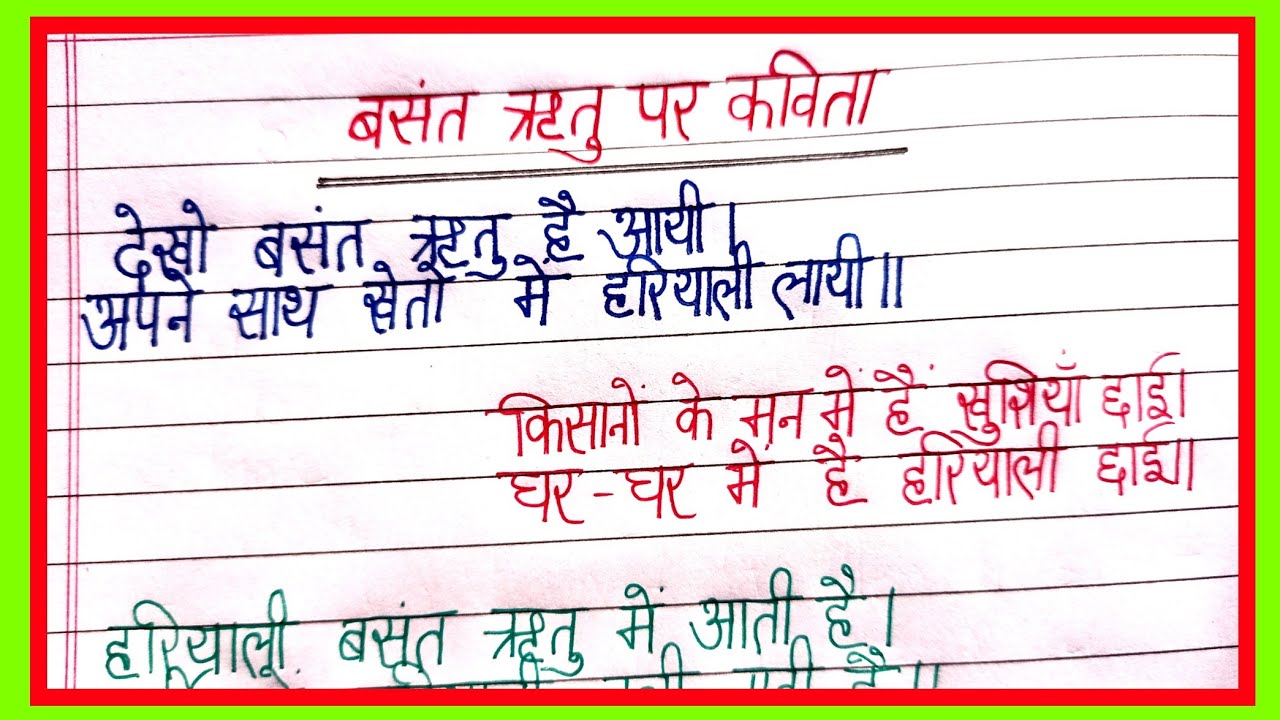 बसंत ऋतु पर कविता
देखो बसंत ऋतु है आयी।
अपने साथ खेतों में हरियाली लायी॥
किसानों के मन में हैं खुशियाँ छाई।
घर-घर में है हरियाली छाई॥
हरियाली बसंत ऋतु में आती है।
है॥